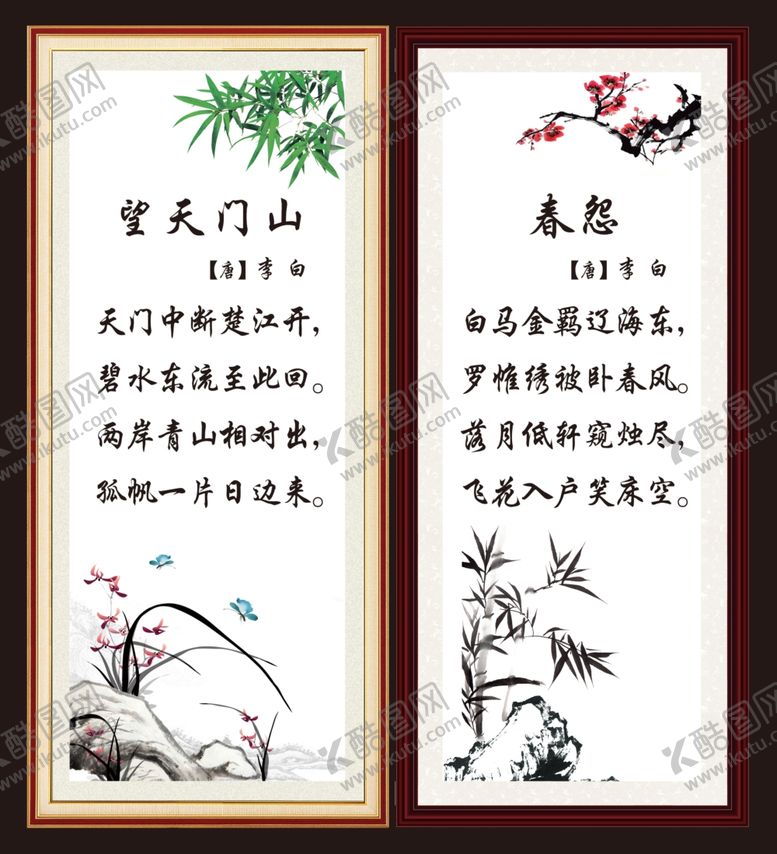 望天门山
【唐】李 白
天门中断楚江开，
碧水东流至此回。
两岸青山相对出，
孤帆一片日边来。
春怨
【唐】李 白
白马金羁辽海东，
罗帷绣被卧春风。
落月低轩窥烛尽，
飞花入户笑床空。
酷图网
www.ikutu.com